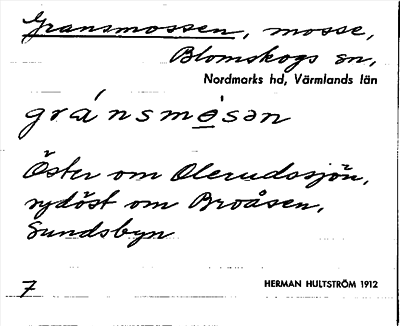 Gransmossen, mosse,
Blomskogs sn,
Nordmarks hd, Värmlands län
gránsmȯ̱sən
Öster om Olerudssjön,
sydöst om Broåsen,
Sundsbyn
7
HERMAN HULTSTRÖM 1912